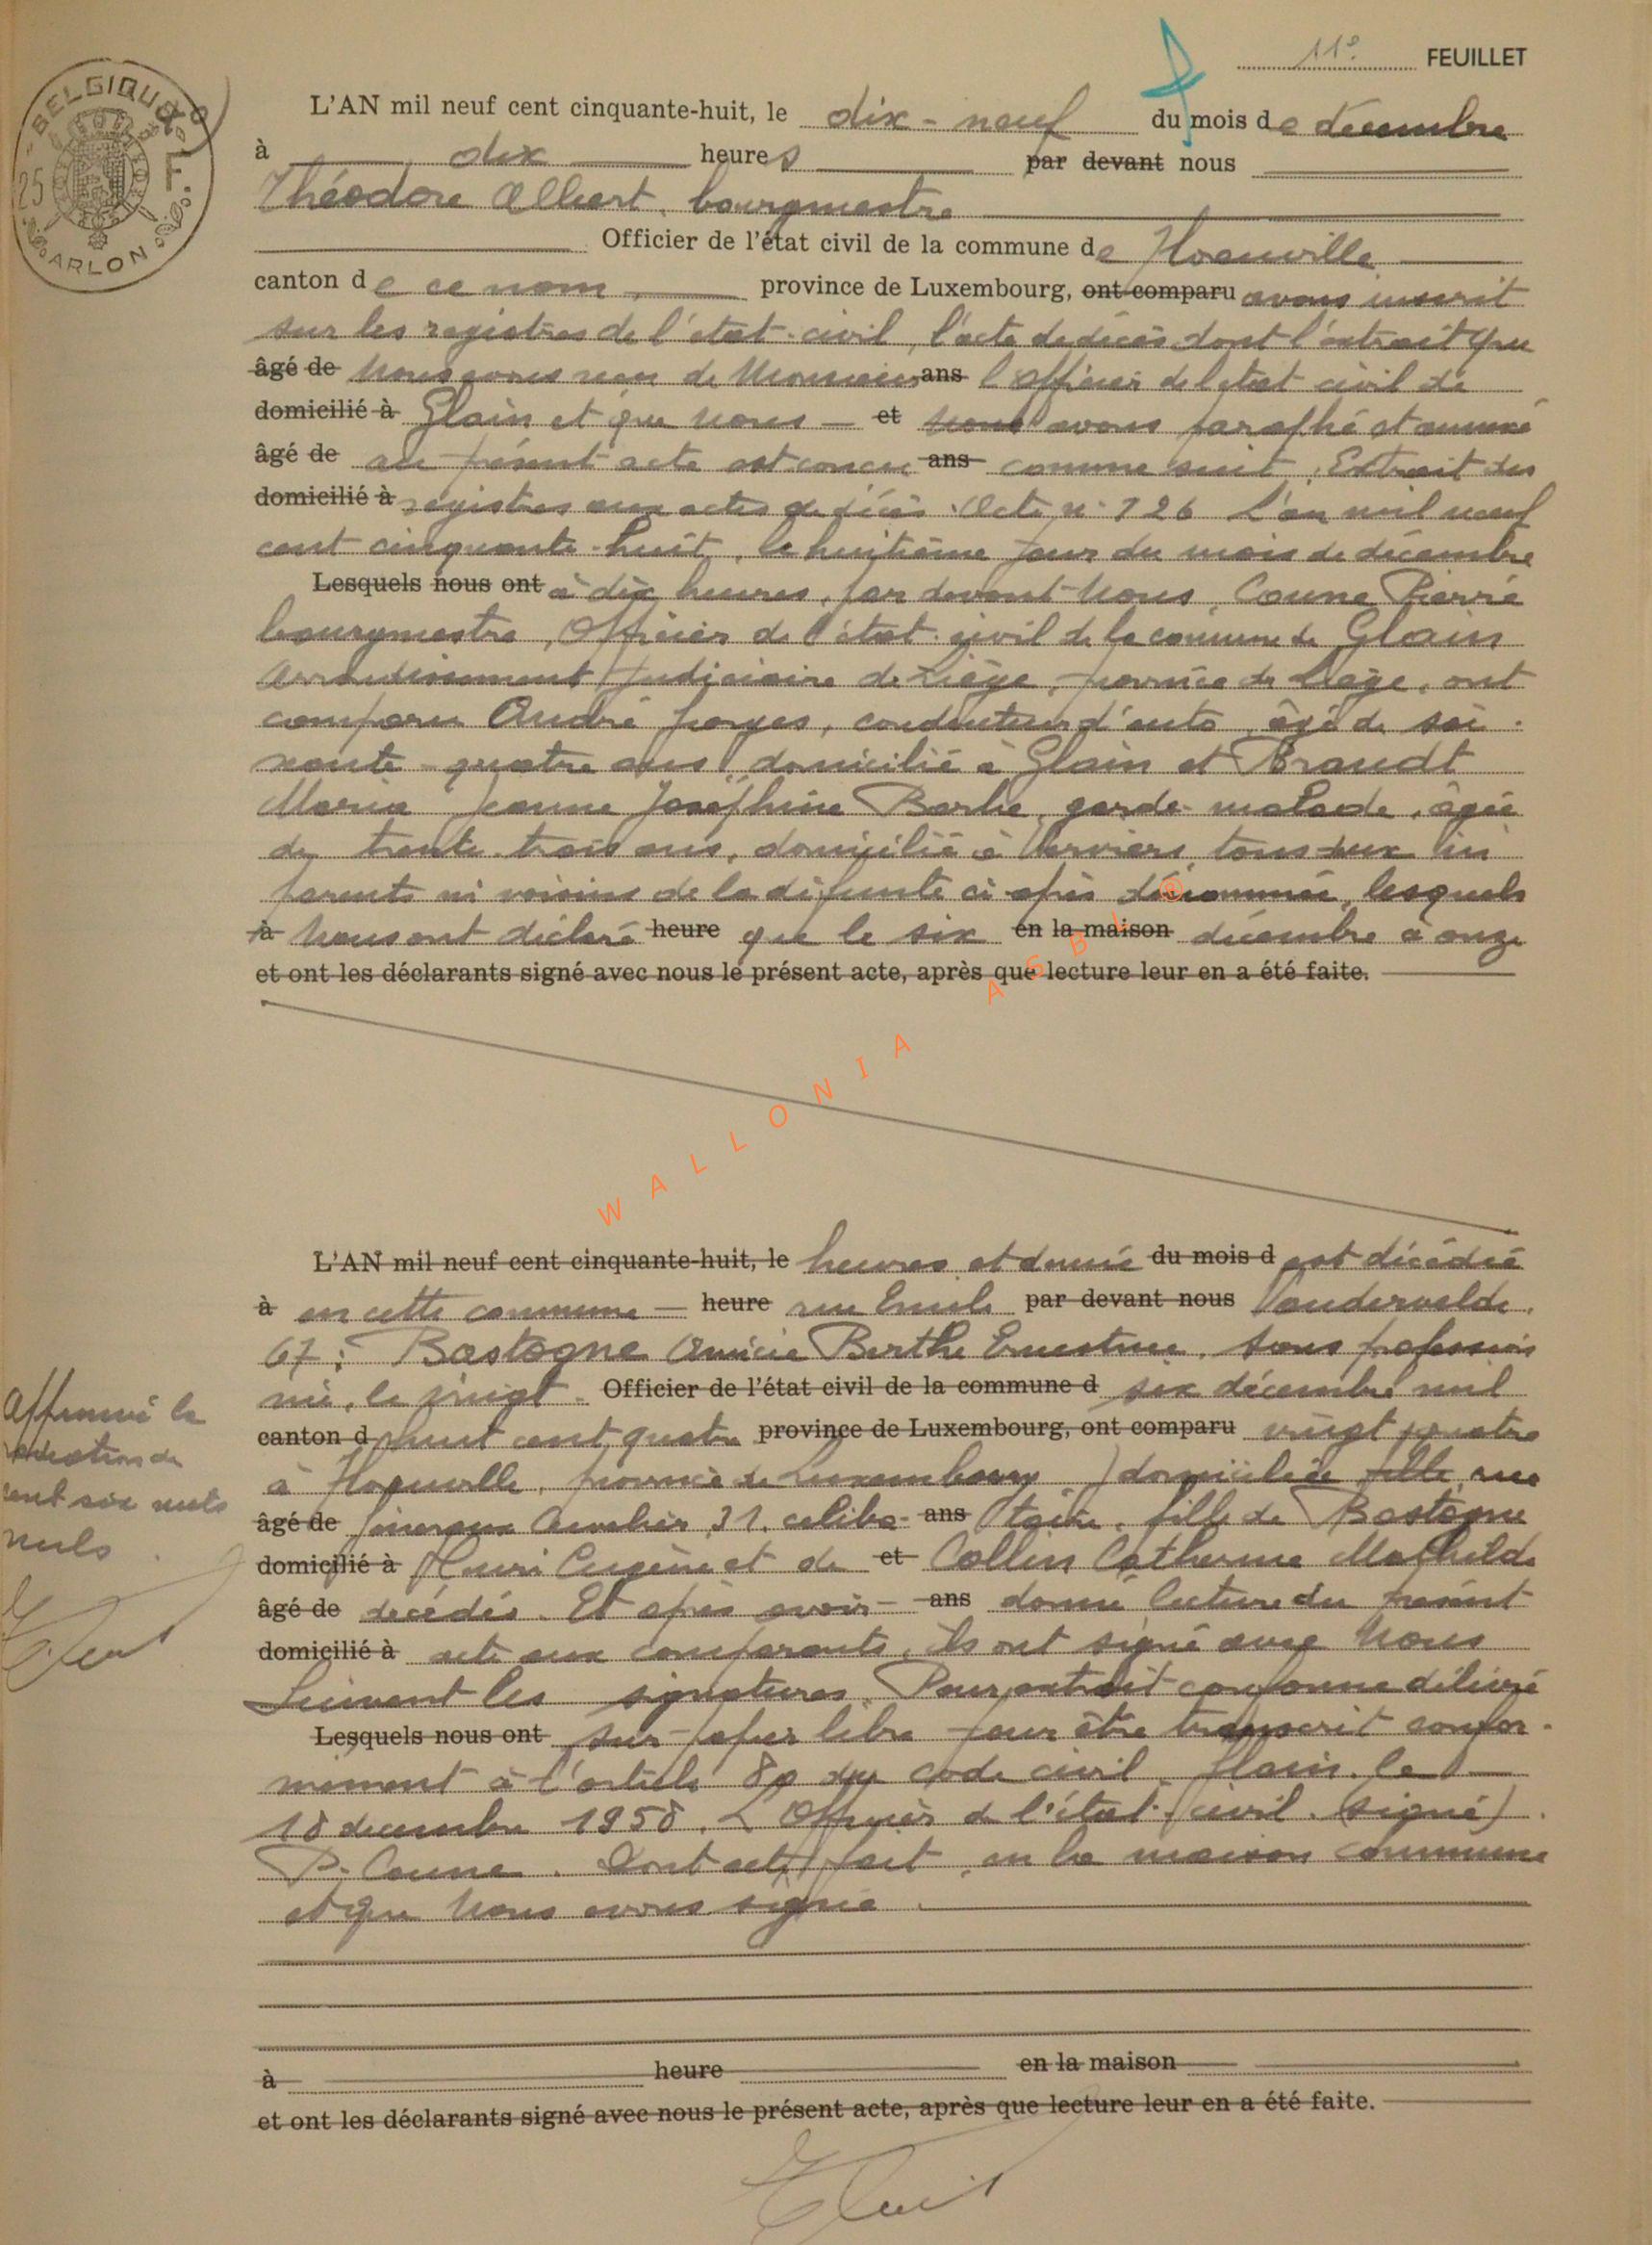 11e FEUILLET
BELGIQUE
25 F.
ARLON
L'AN mil neuf cent cinquante-huit, le dix-neuf du mois de décembre
à dix heures par devant nous
Théodore Albert, bourgmestre
Officier de l'état civil de la commune de
canton de ce nom, province de Luxembourg, ont comparu avons inscrit
sur les registres de l'état-civil, l'acte de décès dont l'extrait que
âgé de nous avons reçu de Monsieur ans l'officier de l'état civil de
domicilié à Glain et que nous et nous avons paraphé et annexé
âgé de au présent acte est concu ans comme suit. Extrait des
domicilié à registres aux actes de décès. Acte n° 126 L'an mil neuf
cent cinquante-huit, le huitième jour du mois de décembre
Lesquels nous ont à dix heures, par devant Nous, Coune Pierre
bourgmestre, Officier de l'état-civil de la commune de Glain
arrondissement judiciaire de Liège, province de Liège, ont
comparu André conducteur d'auto, âgé de soi-
xante-quatre ans, domicilié à Glain et Brandt
Maria Jeanne Joséphine Barbe, garde-malade, âgée
de trente-trois ans, domiciliée à Verviers, tous deux ni
parents ni voisins de la défunte ci-après dénommée, lesquels
à nous ont déclaré heure que le six en la maison décembre à onze
et ont les déclarants signé avec nous le présent acte, après que lecture leur en a été faite.
® WALLONIA ASBL
L'AN mil neuf cent cinquante-huit, le heures et demie du mois d est décédée
à en cette commune heure rue Emile par devant nous Vandervelde,
67: Bastogne Berthe Ernestine, sans profession
née, le vingt Officier de l'état civil de la commune d six décembre mil
canton d huit cent quatre province de Luxembourg, ont comparu vingt quatre
à province de Luxembourg, domiciliée rue
âgé de 31, céliba- ans taire, fille de Bastogne
domicilié à Henri Eugène et de et Collin Catherine Mathilde
âgé de décédés. Et après avoir ans donné lecture du présent
domicilié à acte aux comparants, ils ont signé avec Nous
Suivent les signatures. Pour extrait conforme délivré
Lesquels nous ont sur papier libre pour être transcrit confor-
mément à l'article 80 du code civil. Glain, le
18 décembre 1958. L'Officier de l'état-civil. (signé)
P. Coune. Dont acte fait, en la maison commune
et que Nous avons signé.
Approuvé la
radiation de
cent six mots
nuls.
à heure en la maison
et ont les déclarants signé avec nous le présent acte, après que lecture leur en a été faite.